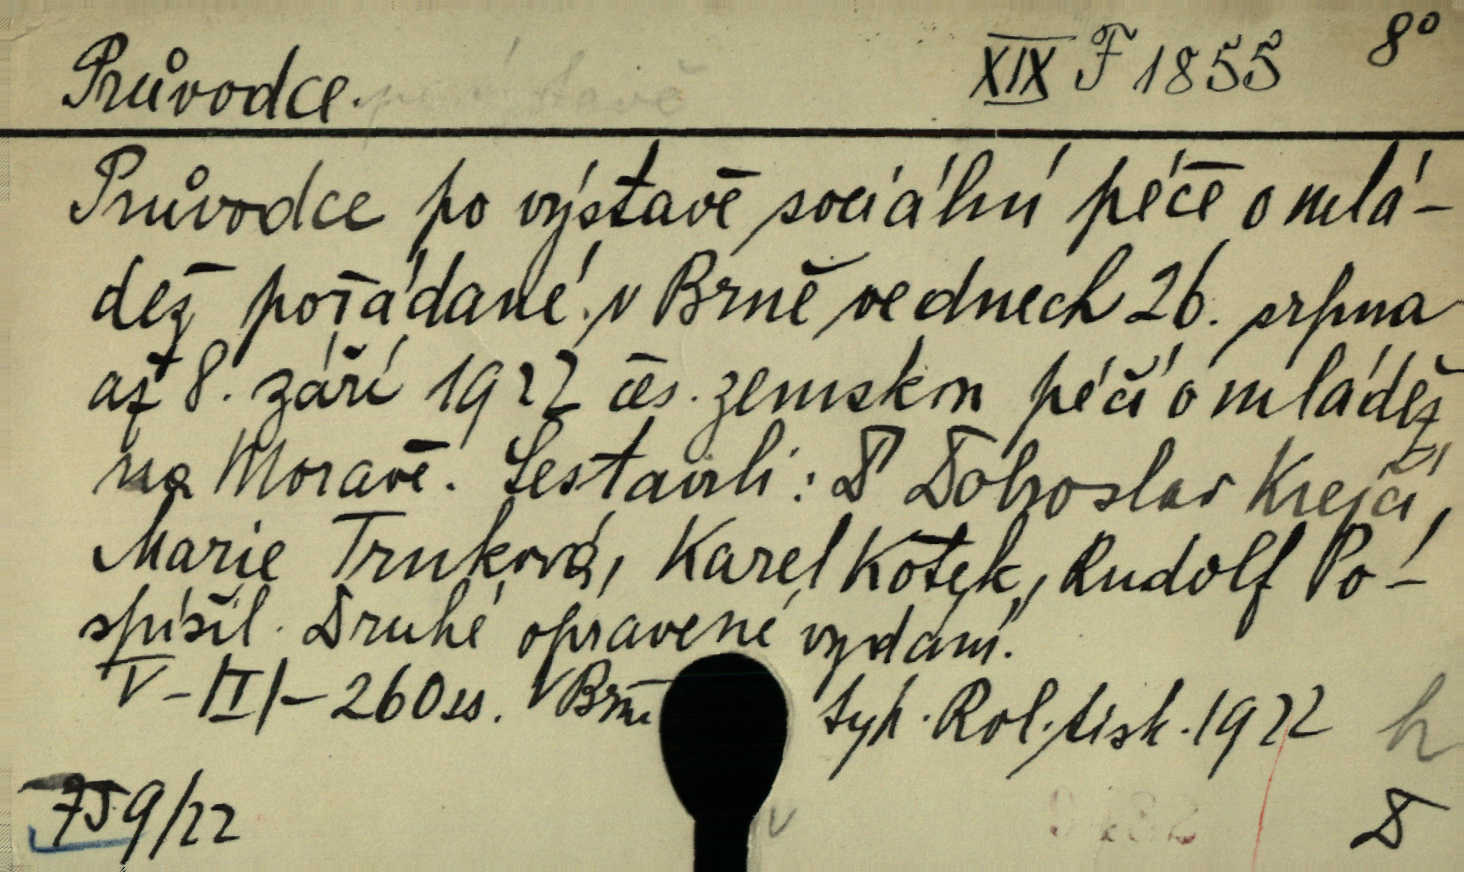 Průvodce.
XIX F 1855 8°
Průvodce po výstavě sociální péče o mlá-
dež pořádané v Brně ve dnech 26. srpna
až 8. září 1922 čes. zemskou péčí o mládež
na Moravě. Sestavili: Dr Dobroslav Krejčí,
Marie Trnková, Karel Kotek, Rudolf Po-
spíšil. Druhé opravené vydání.
V-|II|-260 ss. V Brně typ. Rol. tisk. 1922
h
759/22
D